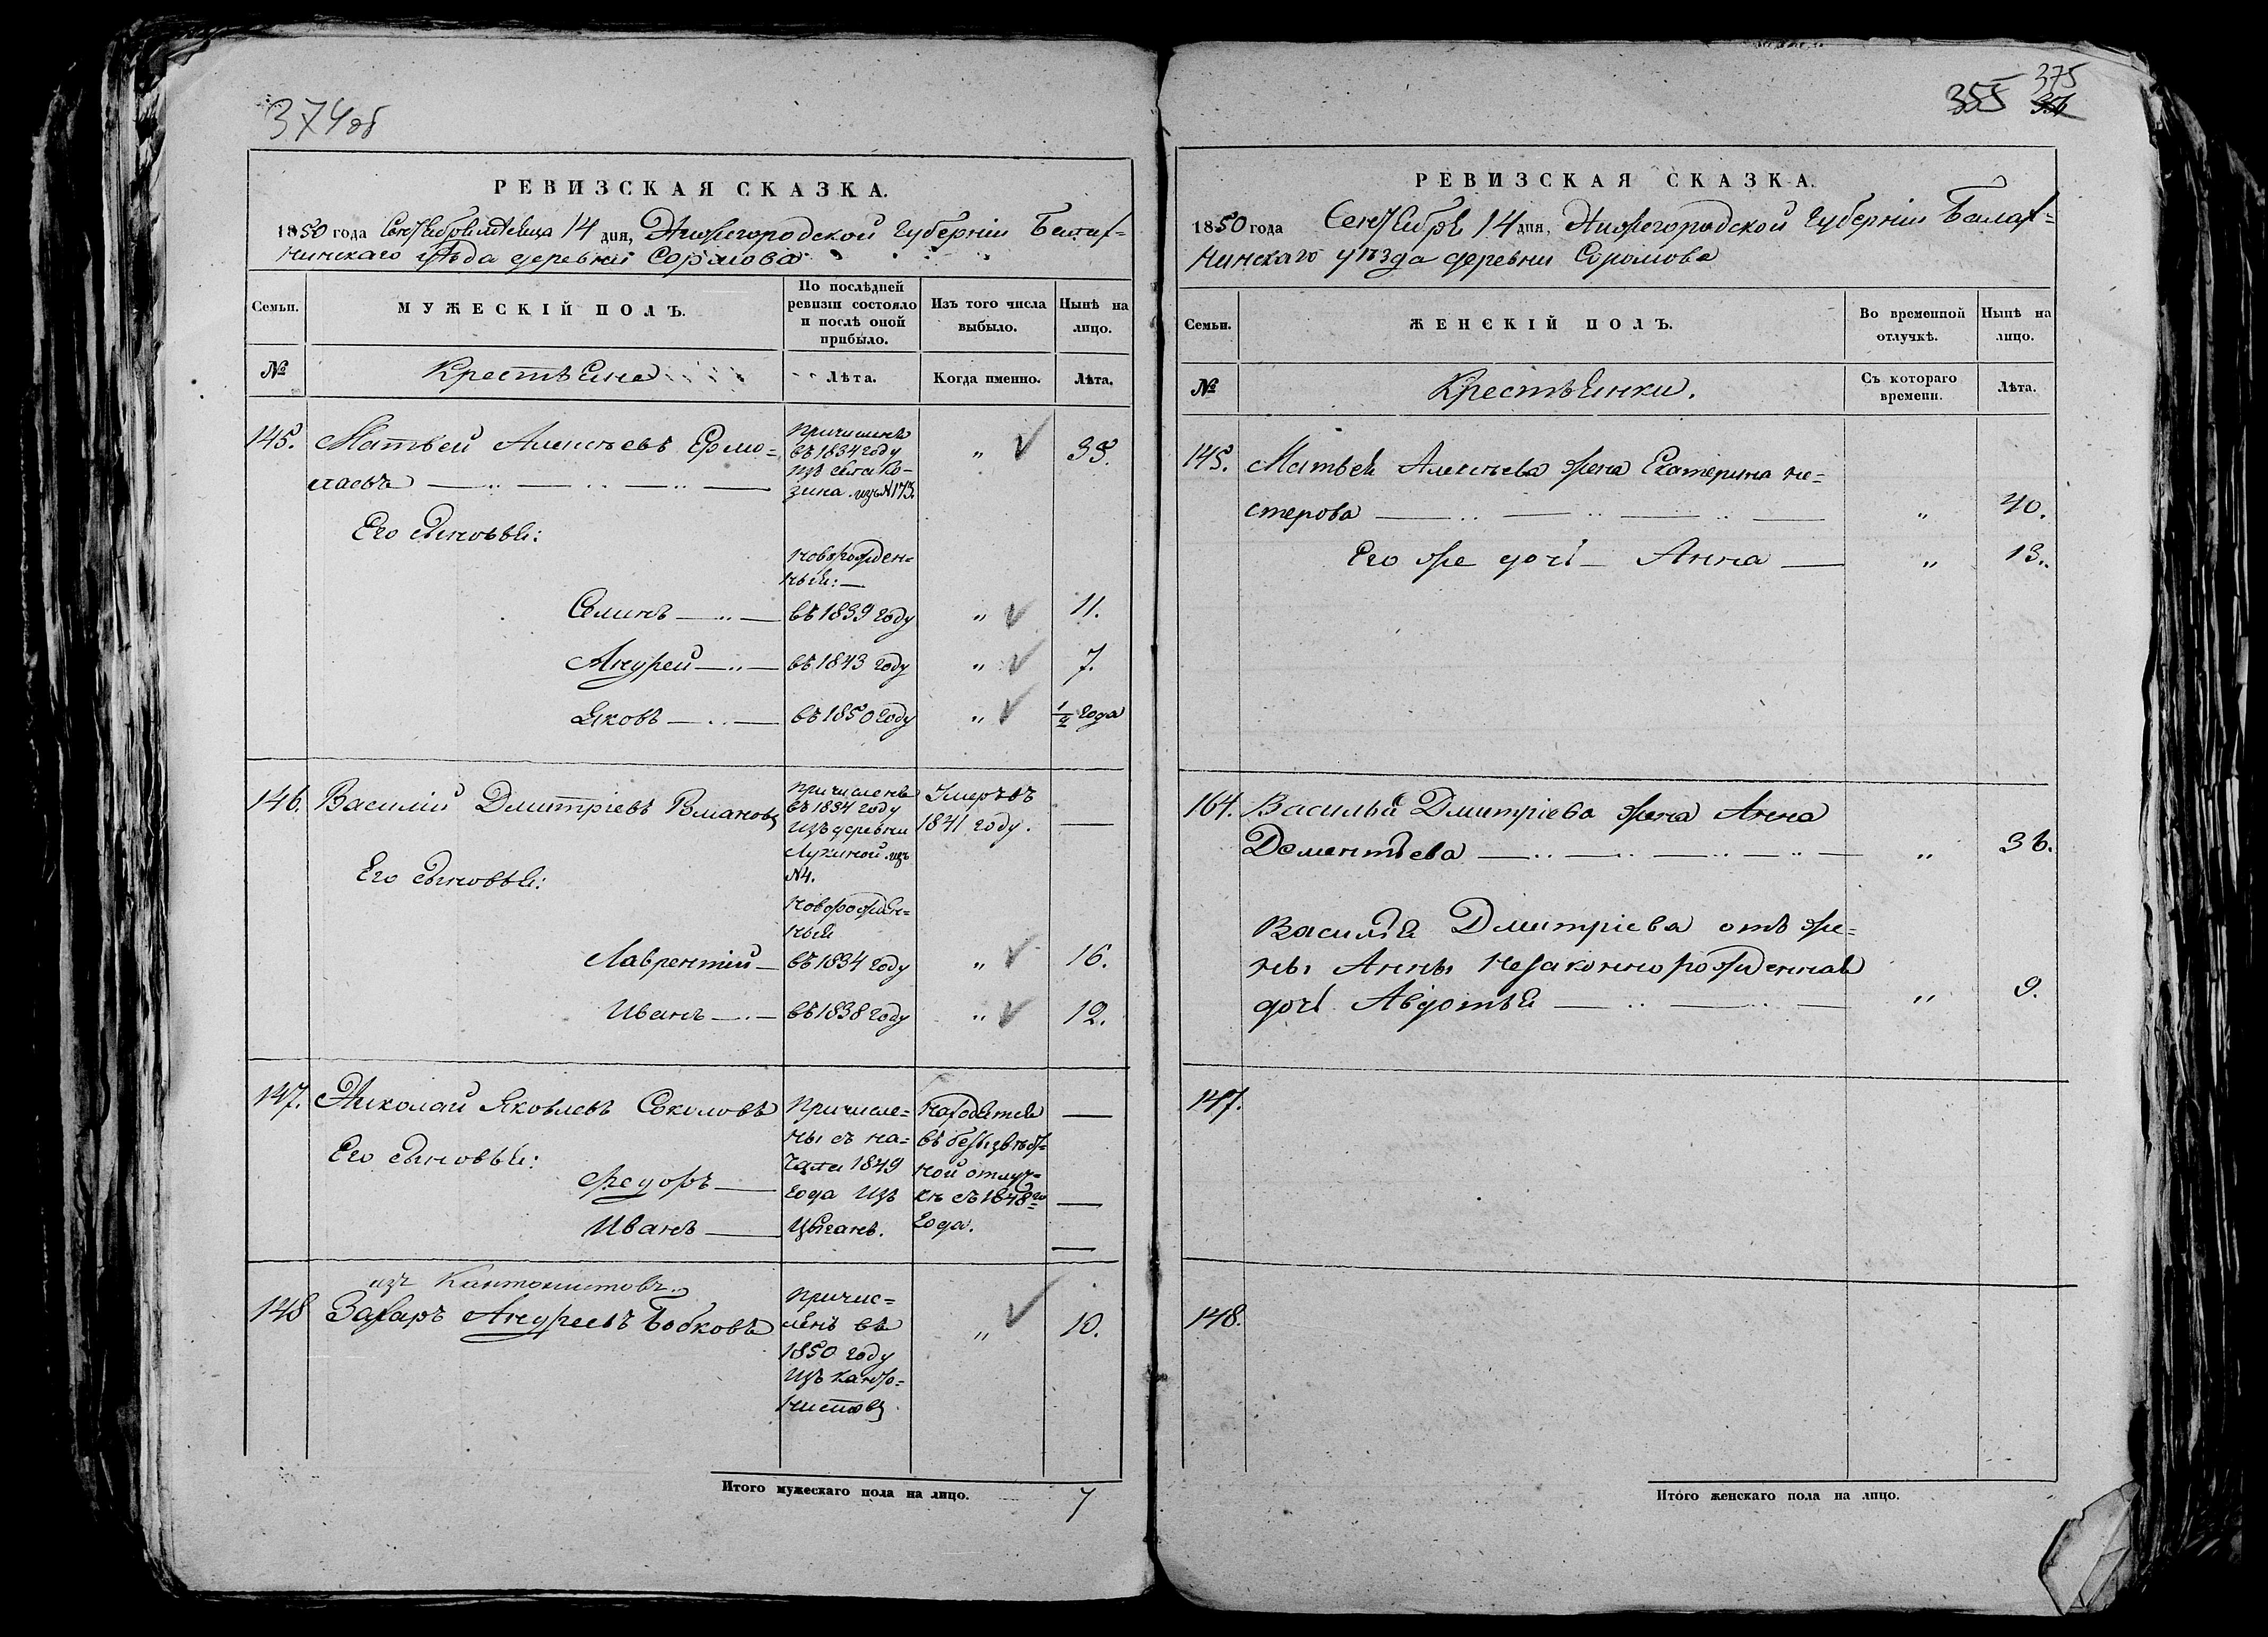 374об
РЕВИЗСКАЯ СКАЗКА.
1850 года Сентября месяца 14 дня, Нижегородской Губерніи Балах=
нинскаго уѣзда деревни Сормова
Семьи.
МУЖЕСКІЙ ПОЛЪ.
По послѣдней
ревизіи состояло
и послѣ оной
прибыло.
Изъ того числа
выбыло.
Нынѣ на
лицо.
№
Крестьяне
Лѣта.
Когда именно.
Лѣта.
145.
Матвей Алексѣевъ Ермо=
лаевъ
причисленъ
въ 1834 году
изъ села Ко-
зина изъ №173.
"
35.
Его сыновья:
новорожден=
ныя:
Семинъ
въ 1839 году
"
11.
Андрей
въ 1843 году
"
7.
Яковъ
въ 1850 году
"
1/2 года
146.
Василій Дмитріевъ
причисленъ
въ 1834 году
изъ деревни
Лукиной изъ
№4.
Умеръ въ
1841 году.
Его сыновья:
новорожден=
ныя
Лаврентій
въ 1834 году
"
16.
Иванъ
въ 1838 году
"
12.
147.
Николай Яковлевъ Соколовъ
Причисле=
ны съ на=
чала 1849
года изъ
Цыганъ.
Находятся
въ безъизвѣст=
ной отлуч=
кѣ съ 1848го
года.
Его сыновья:
Федоръ
Иванъ
изъ Кантонистовъ
148
Захаръ Андреевъ Бобковъ
Причис=
ленъ въ
1850 году
изъ канто=
нистовъ
"
10.
Итого мужескаго пола на лицо.
7
355
375
РЕВИЗСКАЯ СКАЗКА.
1850 года Сентября 14 дня, Нижегородской Губерніи Балах=
нинскаго уѣзда деревни Сормова
Семьи.
ЖЕНСКІЙ ПОЛЪ.
Во временной
отлучкѣ.
Нынѣ на
лицо.
№
Крестьянки.
Съ котораго
времени.
Лѣта.
145.
Матвея Алексѣева жена Екатерина не=
стерова
"
40.
Его же дочь Анна
"
13.
164.
Василья Дмитріева жена Анна
Дементьева
"
36.
Василья Дмитріева отъ же=
ны Анны незаконнорожденная
дочь Авдотья
"
9.
147.
148.
Итого женскаго пола на лицо.